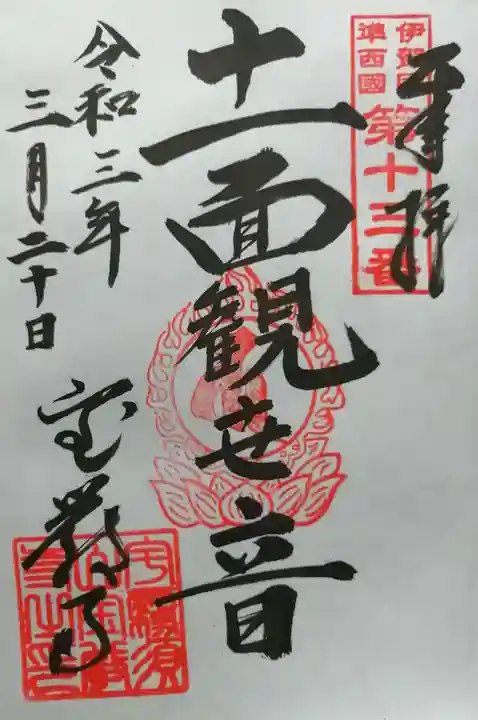 奉拝
伊賀國
準西國
第十三番
十一面観世音
宝厳寺
令和三年
三月二十日